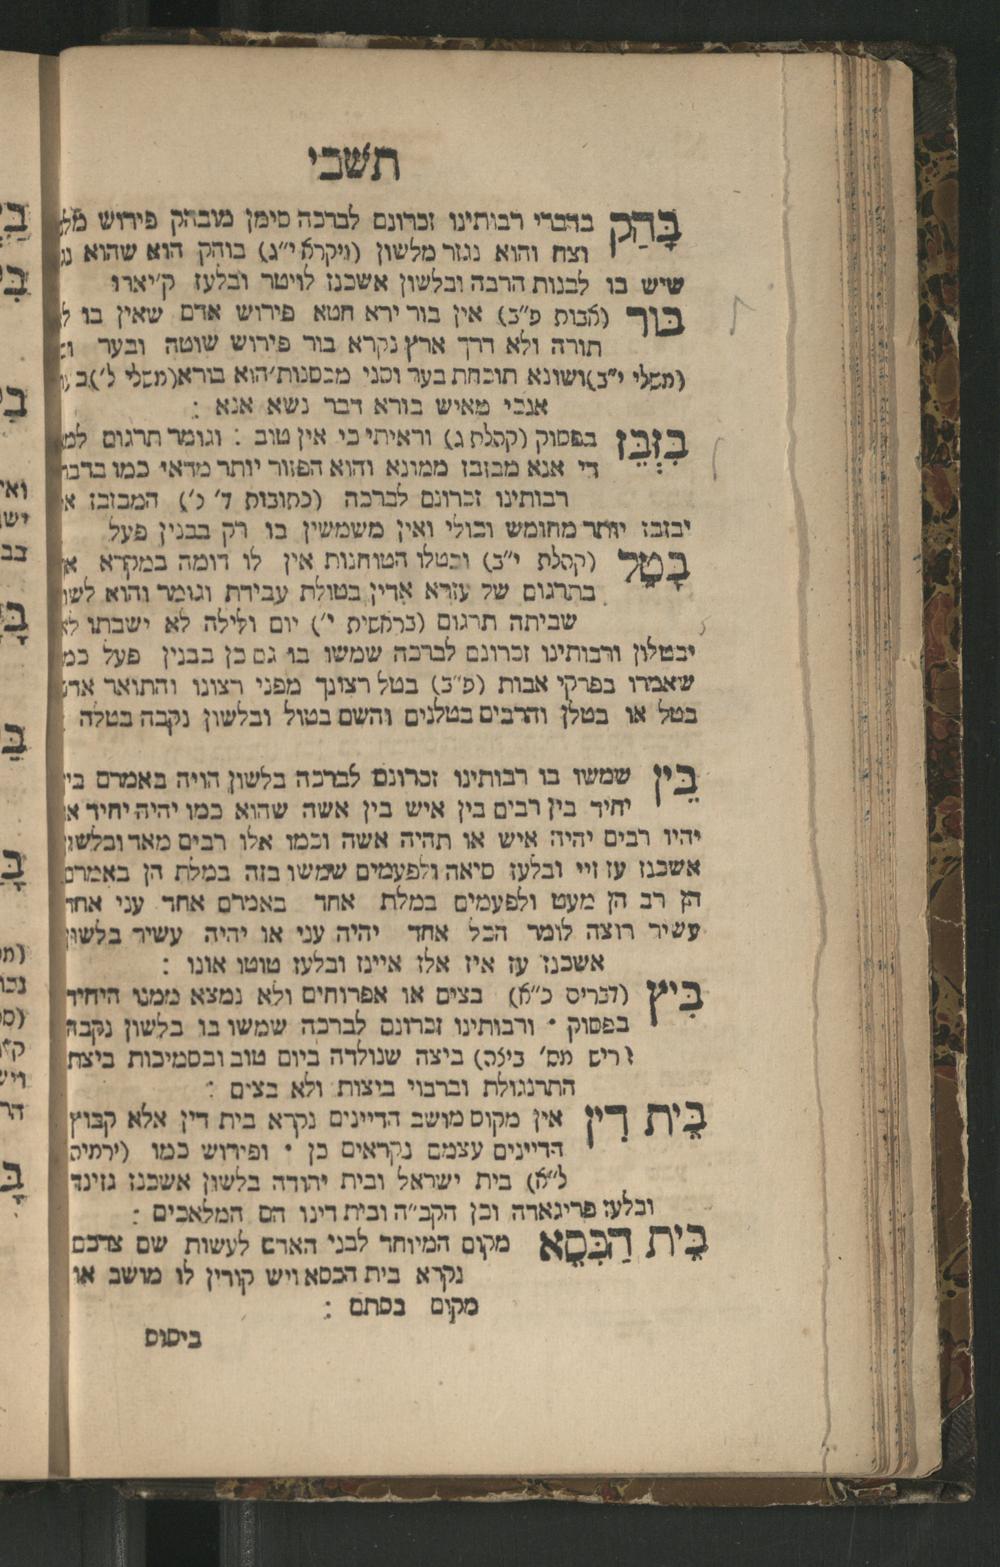 תשבי
בָּהַק בדברי רבותינו זכרונם לברכה סימן מובהק פירוש
וצח והוא נגזר מלשון (ויקרא י״ג) בוהק הוא שהוא
שיש בו לבנות הרבה ובלשון אשכנז לויטר ובלעז ק׳יארו
בּוּר (אבות פ״ב) אין בור ירא חטא פירוש אדם שאין בו
תורה ולא דרך ארץ נקרא בור פירוש שוטה ובער
(משלי י״ב) ושונא תוכחת בער וסני מכסנות׳ הוא בורא (משלי ל׳)
אנכי מאיש בורא דבר נשא אנא :
בִּזְבֵּז בפסוק (קהלת ג) וראיתי כי אין טוב : וגומר תרגום
די אנא מבזבז ממונא והוא הפזור יותר מדאי כמו בדברי
רבותינו זכרונם לברכה (כתובות ד׳ כ׳) המבזבז
יבזבז יותר מחומש וכולי ואין משמשין בו רק בבנין פעל
בָּטֵל (קהלת י״ב) ובטלו הטוחנות אין לו דומה במקרא
בתרגום של עזרא אדין בטולת עבידת וגומר והוא
שביתה תרגום (בראשית י׳) יום ולילה לא ישבתו
יבטלון ורבותינו זכרונם לברכה שמשו בו גם כן בבנין פעל
שאמרו בפרקי אבות (פ״ב) בטל רצונך מפני רצונו והתואר
בטל או בטלן והרבים בטלנים והשם בטול ובלשון נקבה בטלה
בֵּין שמשו בו רבותינו זכרונם לברכה בלשון הויה באמרם
יחיד בין רבים בין איש בין אשה שהוא כמו יהיה יחיד
יהיו רבים יהיה איש או תהיה אשה וכמו אלו רבים מאד ובלשון
אשכנז עז זיי ובלעז סיאה ולפעמים שמשו בזה במלת הן באמרם
הן רב הן מעט ולפעמים במלת אחד באמרם אחד עני אחד
עשיר רוצה לומר הכל אחד יהיה עני או יהיה עשיר בלשון
אשכנז עז איז אלז איינז ובלעז טוטו אונו :
בִּיץ (דברים כ״א) בצים או אפרוחים ולא נמצא ממנו היחיד
בפסוק • ורבותינו זכרונם לברכה שמשו בו בלשון נקבה
(ריש מס׳ ביצה) ביצה שנולדה ביום טוב ובסמיכות ביצת
התרנגולת וברבוי ביצות ולא בצים :
בֵּית דִּין אין מקום מושב הדיינים נקרא בית דין אלא קבוץ
הדיינים עצמם נקראים כן • ופירוש כמו (ירמיה
ל״א) בית ישראל ובית יהודה בלשון אשכנז גזינד
ובלעז פריגארה וכן הקב״ה ובית דינו הם המלאכים :
בֵּית הַכִּסֵּא מקום המיוחד לבני האדם לעשות שם צרכם
נקרא בית הכסא ויש קורין לו מושב או
מקום בסתם :
ביסוס